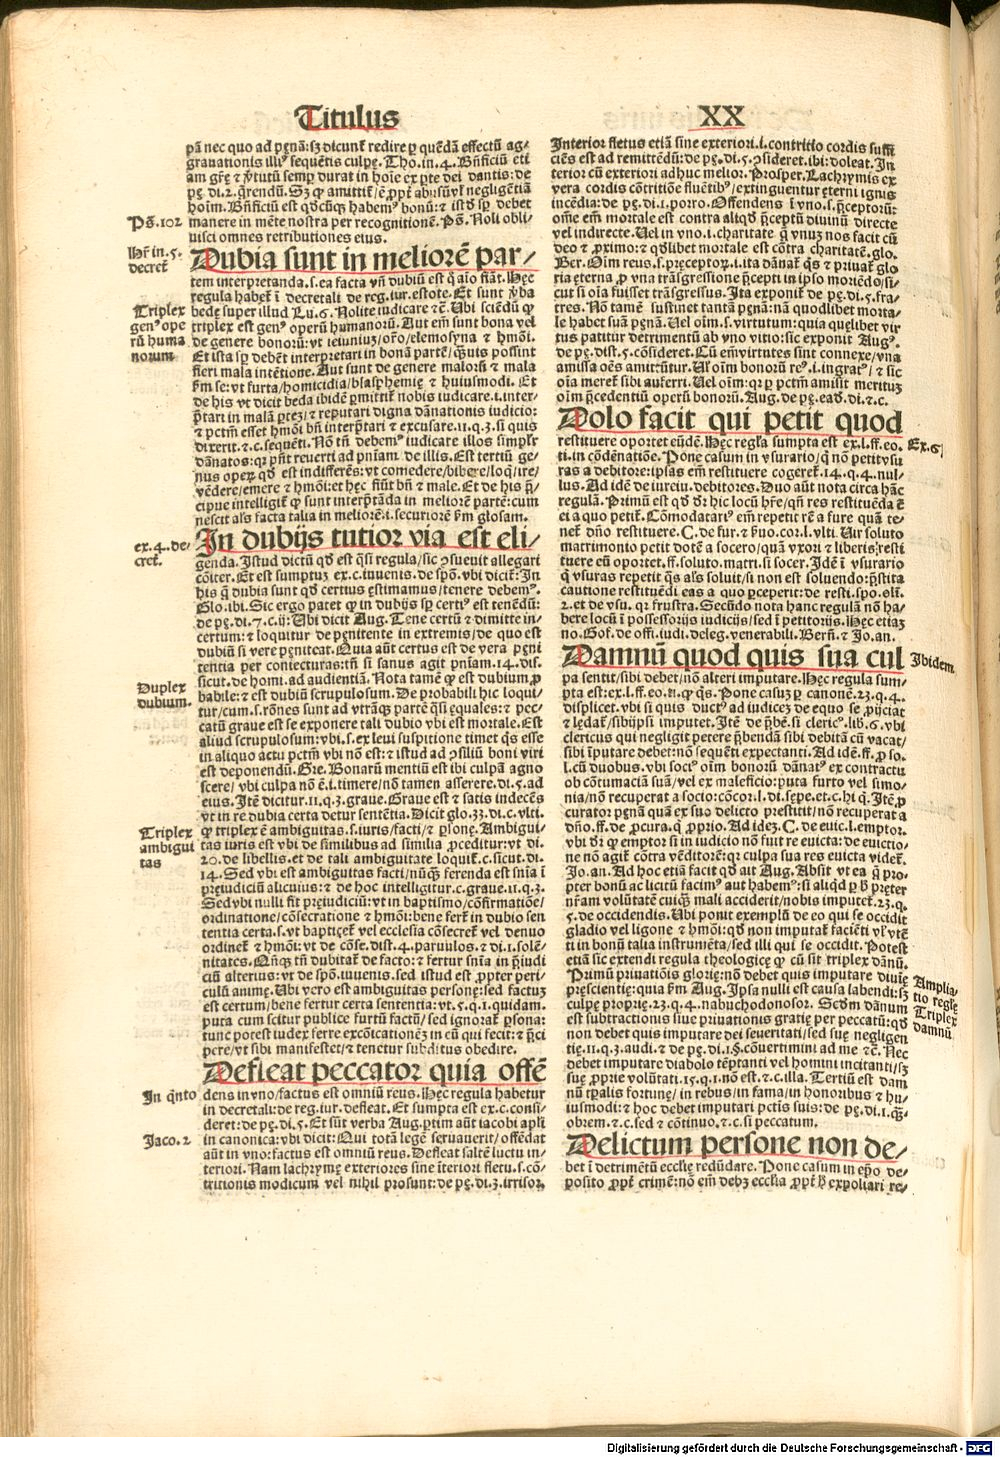 Titulus XX
pā nec quo ad pęnā: sꝫ dicunt͛ redire ꝑ quēdā effectū ag⸗
grauationis illiꝰ sequētis culpę. Tho. in. 4. Bn̄ficiū eti
am grē ⁊ v̄tutū semꝑ durat in hoīe ex ꝑte dei dantis: de
hoīm. Bn̄ficiū est qd̄cūqꝫ habemꝰ bonū: ⁊ istd̄ sꝑ debet
Ps. 102
manere in mēte nostra per recognitionē. Ps. Noli obli/
uisci omnes retributiones eius.
Dubia sunt in meliorē par/
Hr̄ in. 5.
decret͛
tem interpretanda. s. ea facta vn̄ dubiū est q̄ aīo fiāt. Hęc
regula habet͛ ī decretali de reg. iur. estote. Et sunt v̄ba
bedę super illud Lu. 6. Nolite iudicare ⁊c̄. Ubi sciēdū ꝙ
Triplex
genꝰ ope
rū huma
norum
triplex est genꝰ operū humanorū. Aut em̄ sunt bona vel
de genere bonorū: vt ieiuniuꝫ/oro/elemosyna ⁊ hmōi.
Et ista sꝑ debēt interpretari in bonā partē/qꝫuis possint
fieri mala intētione. Aut sunt de genere maloꝝ ⁊ mala
ẜm se: vt furta/homicidia/blasphemię ⁊ huiusmodi. Et
de his vt dicit beda ibidē ꝑmittit͛ nobis iudicare. i. inter⸗
p̄tari in malā ꝑteꝫ/⁊ reputari digna dānationis iudicio:
⁊ pctm̄ esset hmōi bn̄ interp̄tari ⁊ excusare. 11. q. 3. si quis
dixerit. ⁊. c. sequēti. Nō tn̄ debemꝰ iudicare illos simplr̄
dānatos: qꝛ pn̄t reuerti ad pn̄iam de illis. Est tertiū ge⸗
nus opeꝝ qd̄ est indifferēs: vt comedere/bibere/loq̄/ire/
vēdere/emere ⁊ hmōi: et hęc fiūt bn̄ ⁊ male. Et de his p̄⸗
cipue intelligit͛ ꝙ sunt interp̄tāda in meliorē partē: cum
nescit als̄ facta talia in meliorē. i. securiorē ẜm glosam.
In dubijs tutior via est eli/
ex. 4. de/
cret͛.
genda. Istud dictū qd̄ est q̄si regula/sic ꝯsueuit allegari
cōiter. Et est sumptuꝫ ex. c. iuuenis. de spō. vbi dicit͛: In
his q̄ dubia sunt qd̄ certius ęstimamus/tenere debemꝰ.
Glo. ibi. Sic ergo patet ꝙ in dubijs sꝑ certiꝰ est tenēdū:
de pę. di. 7. c. ij: Ubi dicit Aug. Tene certū ⁊ dimitte in⸗
certum: ⁊ loquitur de pęnitente in extremis/de quo est
dubiū si vere pęniteat. Quia aūt certus est de vera pęni
tentia per coniecturas: tn̄ si sanus agit pn̄iam. 14. dis⸗
Duplex
dubium.
sicut. de homi. ad audientiā. Nota tamē ꝙ est dubium ꝓ
babile: ⁊ est dubiū scrupulosum. De probabili hic loqui⸗
tur/cum. s. rōnes sunt ad vtrāqꝫ partē q̄si ęquales: ⁊ pec⸗
catū graue est se exponere tali dubio vbi est mortale. Est
aliud scrupulosum: vbi. s. ex leui suspitione timet qͥs esse
in aliquo actu pctm̄ vbi nō est: ⁊ istud ad ꝯsiliū boni viri
est deponendū. Gre. Bonarū mentiū est ibi culpā agno
scere/vbi culpa nō ē. i. timere/nō tamen asserere. di. 5. ad
eius. Itē dicitur. 11. q. 3. graue. Graue est ⁊ satis indecēs
vt in re dubia certa detur sentētia. Dicit glo. 33. di. c. vlti.
Triplex
ambigui
tas
ꝙ triplex ē ambiguitas. s. iuris/facti/⁊ ꝑsonę. Ambigui⸗
tas iuris est vbi de similibus ad similia ꝓceditur: vt di.
20. de libellis. et de tali ambiguitate loquit͛. c. sicut. di.
14. Sed vbi est ambiguitas facti/nūqꝫ ferenda est sn̄ia ī
pręiudiciū alicuius: ⁊ de hoc intelligitur. c. graue. 11. q. 3.
Sed vbi nulli fit pręiudiciū: vt in baptismo/cōfirmatiōe/
ordinatione/cōsecratione ⁊ hmōi: bene fert͛ in dubio sen
tentia certa. s. vt baptiꝫet͛ vel ecclesia cōsecret͛ vel denuo
ordinet͛ ⁊ hmōi: vt de cōse. dist. 4. paruulos. ⁊ di. 1. solē⸗
nitates. Qn̄qꝫ tn̄ dubitat͛ de facto: ⁊ fertur sn̄ia in p̄iudi
ciū alterius: vt de spō. iuuenis. sed istud est ꝓpter peri⸗
culū animę. Ubi vero est ambiguitas personę: sed factuꝫ
est certum/bene fertur certa sententia: vt. 5. q. 1. quidam.
puta cum scitur publice furtū factū/sed ignorat͛ ꝑsona:
tunc potest iudex ferre excōicationeꝫ in eū qui fecit: ⁊ p̄ci
pere/vt sibi manifestet/⁊ tenetur subditus obedire.
Defleat peccator quia offē
In qͥnto
dens in vno/factus est omniū reus. Hęc regula habetur
in decretali: de reg. iur. defleat. Et sumpta est ex. c. consi⸗
deret: de pę. di. 5. Et sūt verba Aug. ꝑtim aūt iacobi apl̄i
Jaco. 2
in canonica: vbi dicit: Qui totā legē seruauerit/offēdat
aūt in vno: factus est omniū reus. Defleat saltē luctu in⸗
teriori. Nam lachrymę exteriores sine īteriori fletu. s. cō⸗
tritionis modicum vel nihil prosunt: de pę. di. 3. irrisor.
Interior fletus etiā sine exteriori. i. contritio cordis suffi
ciēs est ad remittēdū: de pę. di. 5. ꝯsideret. ibi: doleat. In
terior cū exteriori adhuc melior. Prosper. Lachrymis ex
vera cordis cōtritiōe fluētibꝰ/extinguentur ęterni ignis
incēdia: de pę. di. 1. porro. Offendens ī vno. s. p̄ceptorū:
om̄e em̄ mortale est contra aliqd̄ p̄ceptū diuinū directe
vel indirecte. Uel in vno. i. charitate q̄ vnuꝫ nos facit cū
deo ⁊ ꝓximo: ⁊ qd̄libet mortale est cōtra charitatē. glo.
Ber. Oīm reus. s. pręceptoꝝ. i. ita dānat͛ qͥs ⁊ priuat͛ glo
ria ęterna ꝓ vna trāsgressione p̄cepti in ipso moriēdo/si⸗
cut si oīa fuisset trāsgressus. Ita exponit͛ de pę. di. 5. fra⸗
tres. Nō tamē sustinet tantā pęnā: nā quodlibet morta⸗
le habet suā pęnā. Uel oīm. s. virtutum: quia quęlibet vir
tus patitur detrimentū ab vno vitio: sic exponit Augꝰ.
de pę. dist. 5. cōsideret. Cū em̄ virtutes sint connexę/vna
amissa oēs amittūtur. Ul̓ oīm bonorū reꝰ. i. ingratꝰ/⁊ sic
oīa meret͛ sibi auferri. Uel oīm: qꝛ ꝑ pctm̄ amisit merituꝫ
oīm p̄cedentiū operū bonorū. Aug. de pę. ead̄. di. ⁊. c.
Dolo facit qui petit quod
Ex. 6/
restituere oportet eūdē. Hęc regl̓a sumpta est ex. l. ff. eo.
ti. in cōdēnatiōe. Pone casum in vsurario/q̄ nō petit vsu
ras a debitore: ipsas em̄ restituere cogeret͛. 14. q. 4. nul⸗
lus. Ad idē de iureiu. debitores. Duo aūt nota circa hāc
regulā. Primū est qd̄ dr̄ hic locū hr̄e/qn̄ res restituēda ē
ei a quo petit͛. Cōmodatariꝰ em̄ repetit rē a fure quā te⸗
net͛ dn̄o restituere. C. de fur. ⁊ ẜuo. cor. l. vlti. Uir soluto
matrimonio petit dotē a socero/quā vxori ⁊ liberis/resti
tuere eū oportet. ff. soluto. matri. si socer. Idē ī vsurario
q̄ vsuras repetit qͥs als̄ soluit/si non est soluendo: p̄stita
cautione restituēdi eas a quo ꝑceperit: de resti. spo. olī.
2. et de vsu. qꝛ frustra. Secūdo nota hanc regulā nō ha⸗
bere locū ī possessorijs iudicijs/sed ī petitorijs. Hęc etiaꝫ
no. Gof. de offi. iudi. deleg. venerabili. Bern̄. ⁊ Jo. an.
Damnū quod quis sua cul
Ibidem
pa sentit/sibi debet/nō alteri imputare. Hęc regula sum⸗
pta est: ex. l. ff. eo. ti. ꝙ qͥs. Pone casuꝫ ꝑ canonē. 23. q. 4.
displicet. vbi si quis ductꝰ ad iudiceꝫ de equo se ꝓijciat
⁊ lędat͛/sibijpsi imputet. Itē de p̄bē. si clericꝰ. lib. 6. vbi
clericus qui negligit petere p̄bendam sibi debitā cū vacat/
sibi īputare debet: nō sequēti expectanti. Ad idē. ff. ꝓ so.
l. cū duobus. vbi sociꝰ oīm bonorū dānatꝰ ex contractu
ob cōtumaciā suā/vel ex maleficio: puta furto vel simo⸗
nia/nō recuperat a socio: cōcoꝛ. l. di. sępe. et. c. hi q̄. Itē ꝓ
curator pęnā quā ex suo delicto prestitit/nō recuperat a
dn̄o. ff. de ꝓcura. q̄ ꝓprio. Ad ideꝫ. C. de euic. l. emptor.
vbi dr̄ ꝙ emptor si in iudicio nō fuit re euicta: de euictio⸗
ne nō agit͛ cōtra vēditorē: qꝛ culpa sua res euicta videt͛.
Jo. an. Ad hoc etiā facit qd̄ ait Aug. Absit vt ea q̄ pro⸗
pter bonū ac licitū facimꝰ aut habemꝰ: si aliqd̄ ꝑ ẖ p̄ter
nr̄am volūtatē cuiqꝫ mali acciderit/nobis imputet͛. 23. q.
5. de occidendis. Ubi ponit exemplū de eo qui se occidit
gladio vel ligone ⁊ hmōi: qd̄ non imputat͛ faciēti vl̓ vtē⸗
ti in bonū talia instrumēta/sed illi qui se occidit. Potest
etiā sic extendi regula theologicę ꝙ cū sit triplex dānū.
Amplia/
tio reglę
Triplex
damnū.
Primū priuatiōis glorię: nō debet quis imputare diuię
pręscientię: quia ẜm Aug. Ipsa nulli est causa labendi: sꝫ
culpę proprię. 23. q. 4. nabuchodonosor. Scd̄m dānum
est subtractionis siue priuationis gratię per peccatū: qd̄
non debet quis imputare dei seueritati/sed suę negligen
tię. 11. q. 3. audi. ⁊ de pę. di. 1. §. cōuertimini ad me ⁊c̄. Nec
debet imputare diabolo tēptanti vel homini incitanti/sꝫ
suę ꝓprie volūtati. 15. q. 1. nō est. ⁊. c. illa. Tertiū est dam
nū tꝑalis fortunę/in rebus/in fama/in honoribus ⁊ hu⸗
iusmodi: ⁊ hoc debet imputari pctis̄ suis: de pę. di. 1. qꝫ⸗
obrem. ⁊. c. sed ⁊ cōtinuo. ⁊. c. si peccatum.
Delictum persone non de/
bet ī detrimētū ecclię redūdare. Pone casum in epō de⸗
posito ꝓpt͛ crimē: nō em̄ debꝫ ecclia ꝓpt͛ ẖ expoliari re/